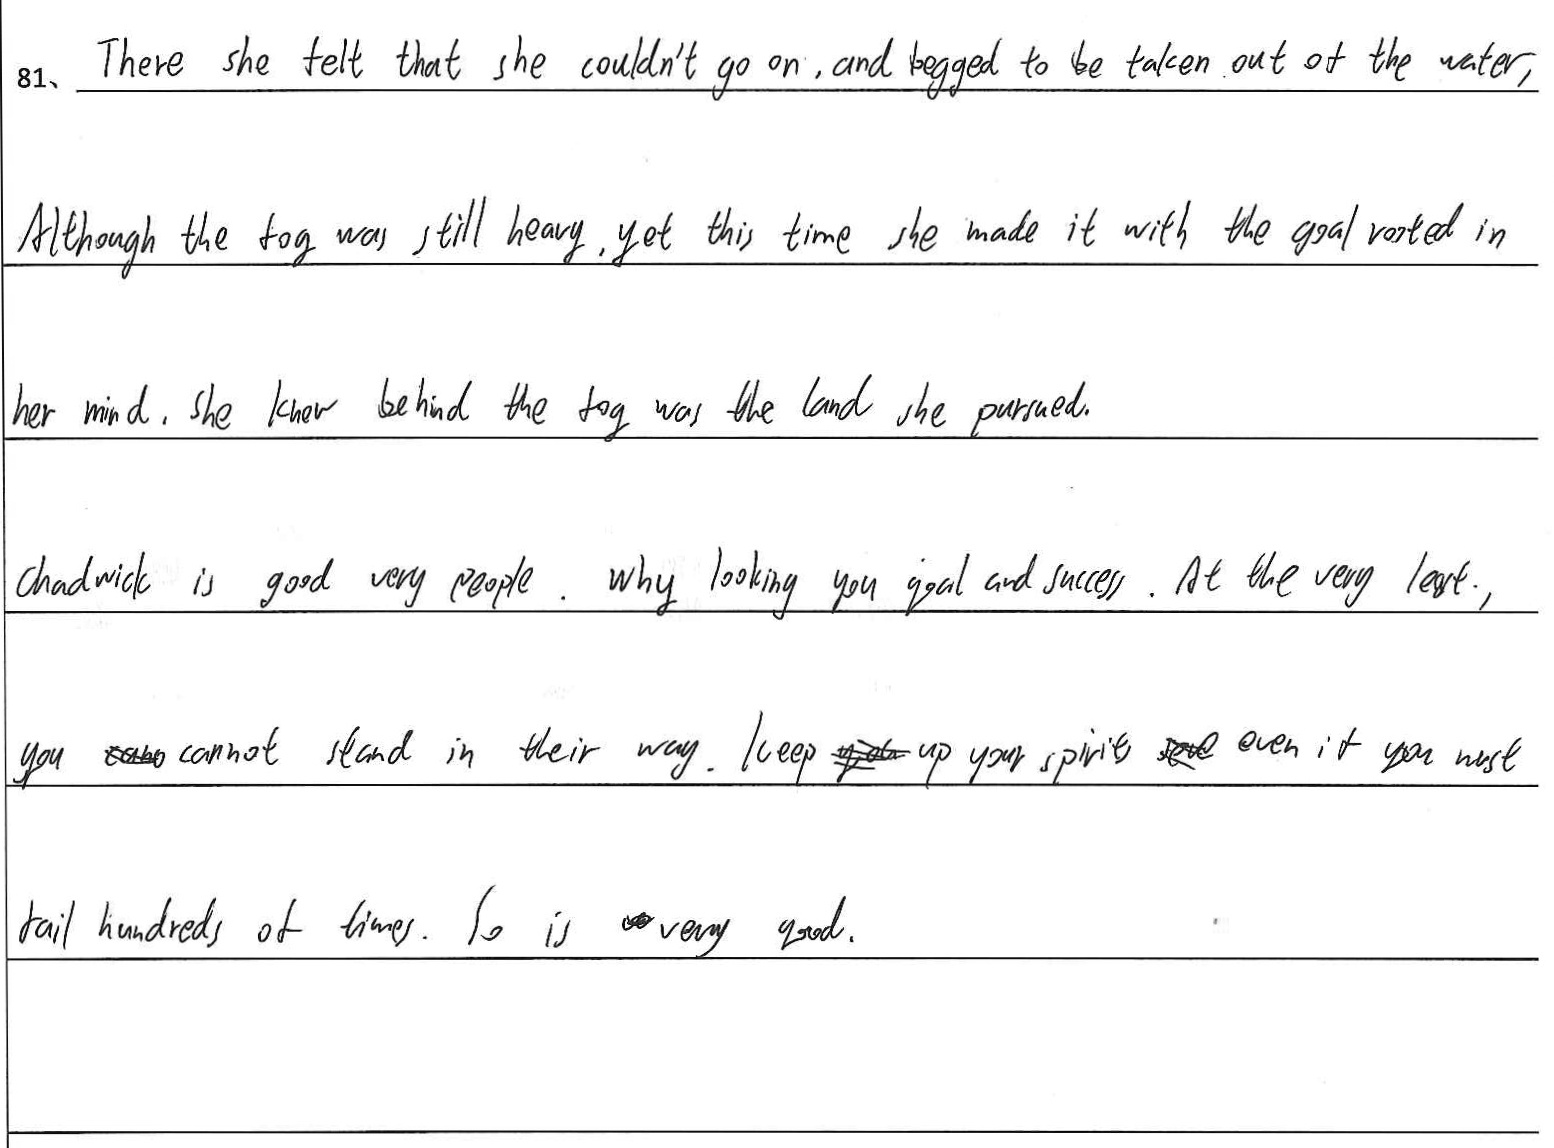 81、 There she felt that she couldn't go on, and begged to be taken out of the water,
Although the fog was still heavy, yet this time she made it with the goal rooted in
her mind. She knew behind the fog was the land she pursued.
Chadwick is good very people. Why looking you goal and success. At the very least.,
you cannot stand in their way. Keep up your spirits even if you must
fail hundreds of times. So is very good.